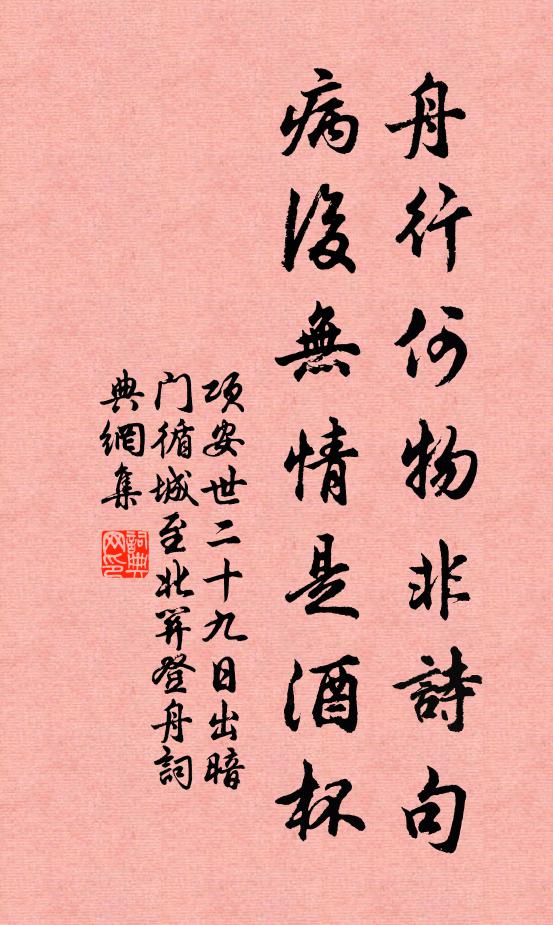 舟行何物非詩句
病後無情是酒杯
项安世二十九日出暗
门循城至北羿登舟詞
典網集
詞典网印